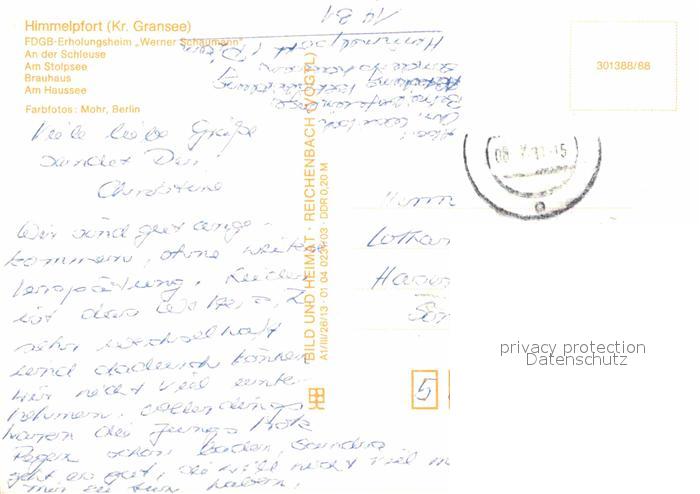 Himmelpfort (Kr. Gransee)
FDGB-Erholungsheim „Werner Schaumann"
An der Schleuse
Am Stolpsee
Brauhaus
Am Haussee
Farbfotos: Mohr, Berlin
301388/88
Viele liebe Grüße
sendet Dir
Christine
Wir sind gut ange-
kommen, ohne weitere
Verspätung. Leider
ist das Wetter z. Z.
sehr wechselhaft
und dadurch können
wir nicht viel unter-
nehmen. allerdings
waren die Jungs trotz
Regen schon baden, Sandra
geht es gut, sie will nicht viel m
mir zu tun haben.
BILD UND HEIMAT · REICHENBACH (VOGTL)
A1/III/26/13 · 01 04 0234/03 · DDR 0,20 M
1431
Himmelpfort
Lothar
5
privacy protection
Datenschutz